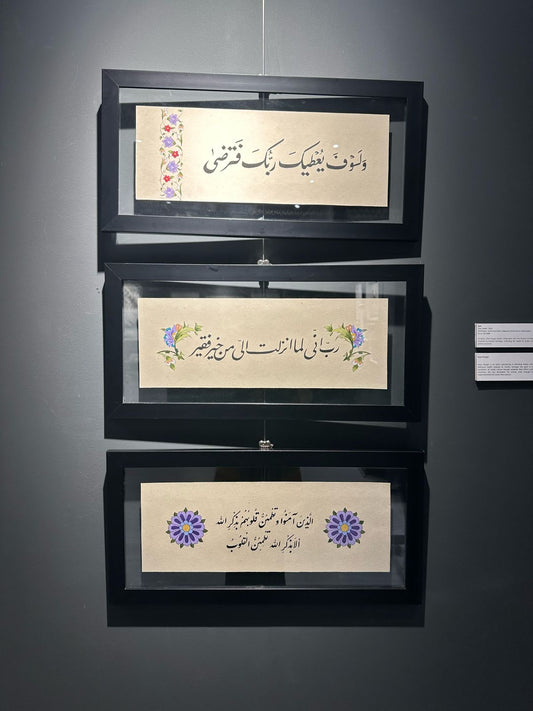 وَلَسَوْفَ يُعْطِيكَ رَبُّكَ فَتَرْضىٰ
ربّ انّی لما انزلت الیّ من خیرٍ فقیر
الَّذِينَ آمَنُوا وَتَطْمَئِنُّ قُلُوبُهُمْ بِذِكْرِ الله
أَلا بِذِكْرِ الله تَطْمَئِنُّ الْقُلُوبُ